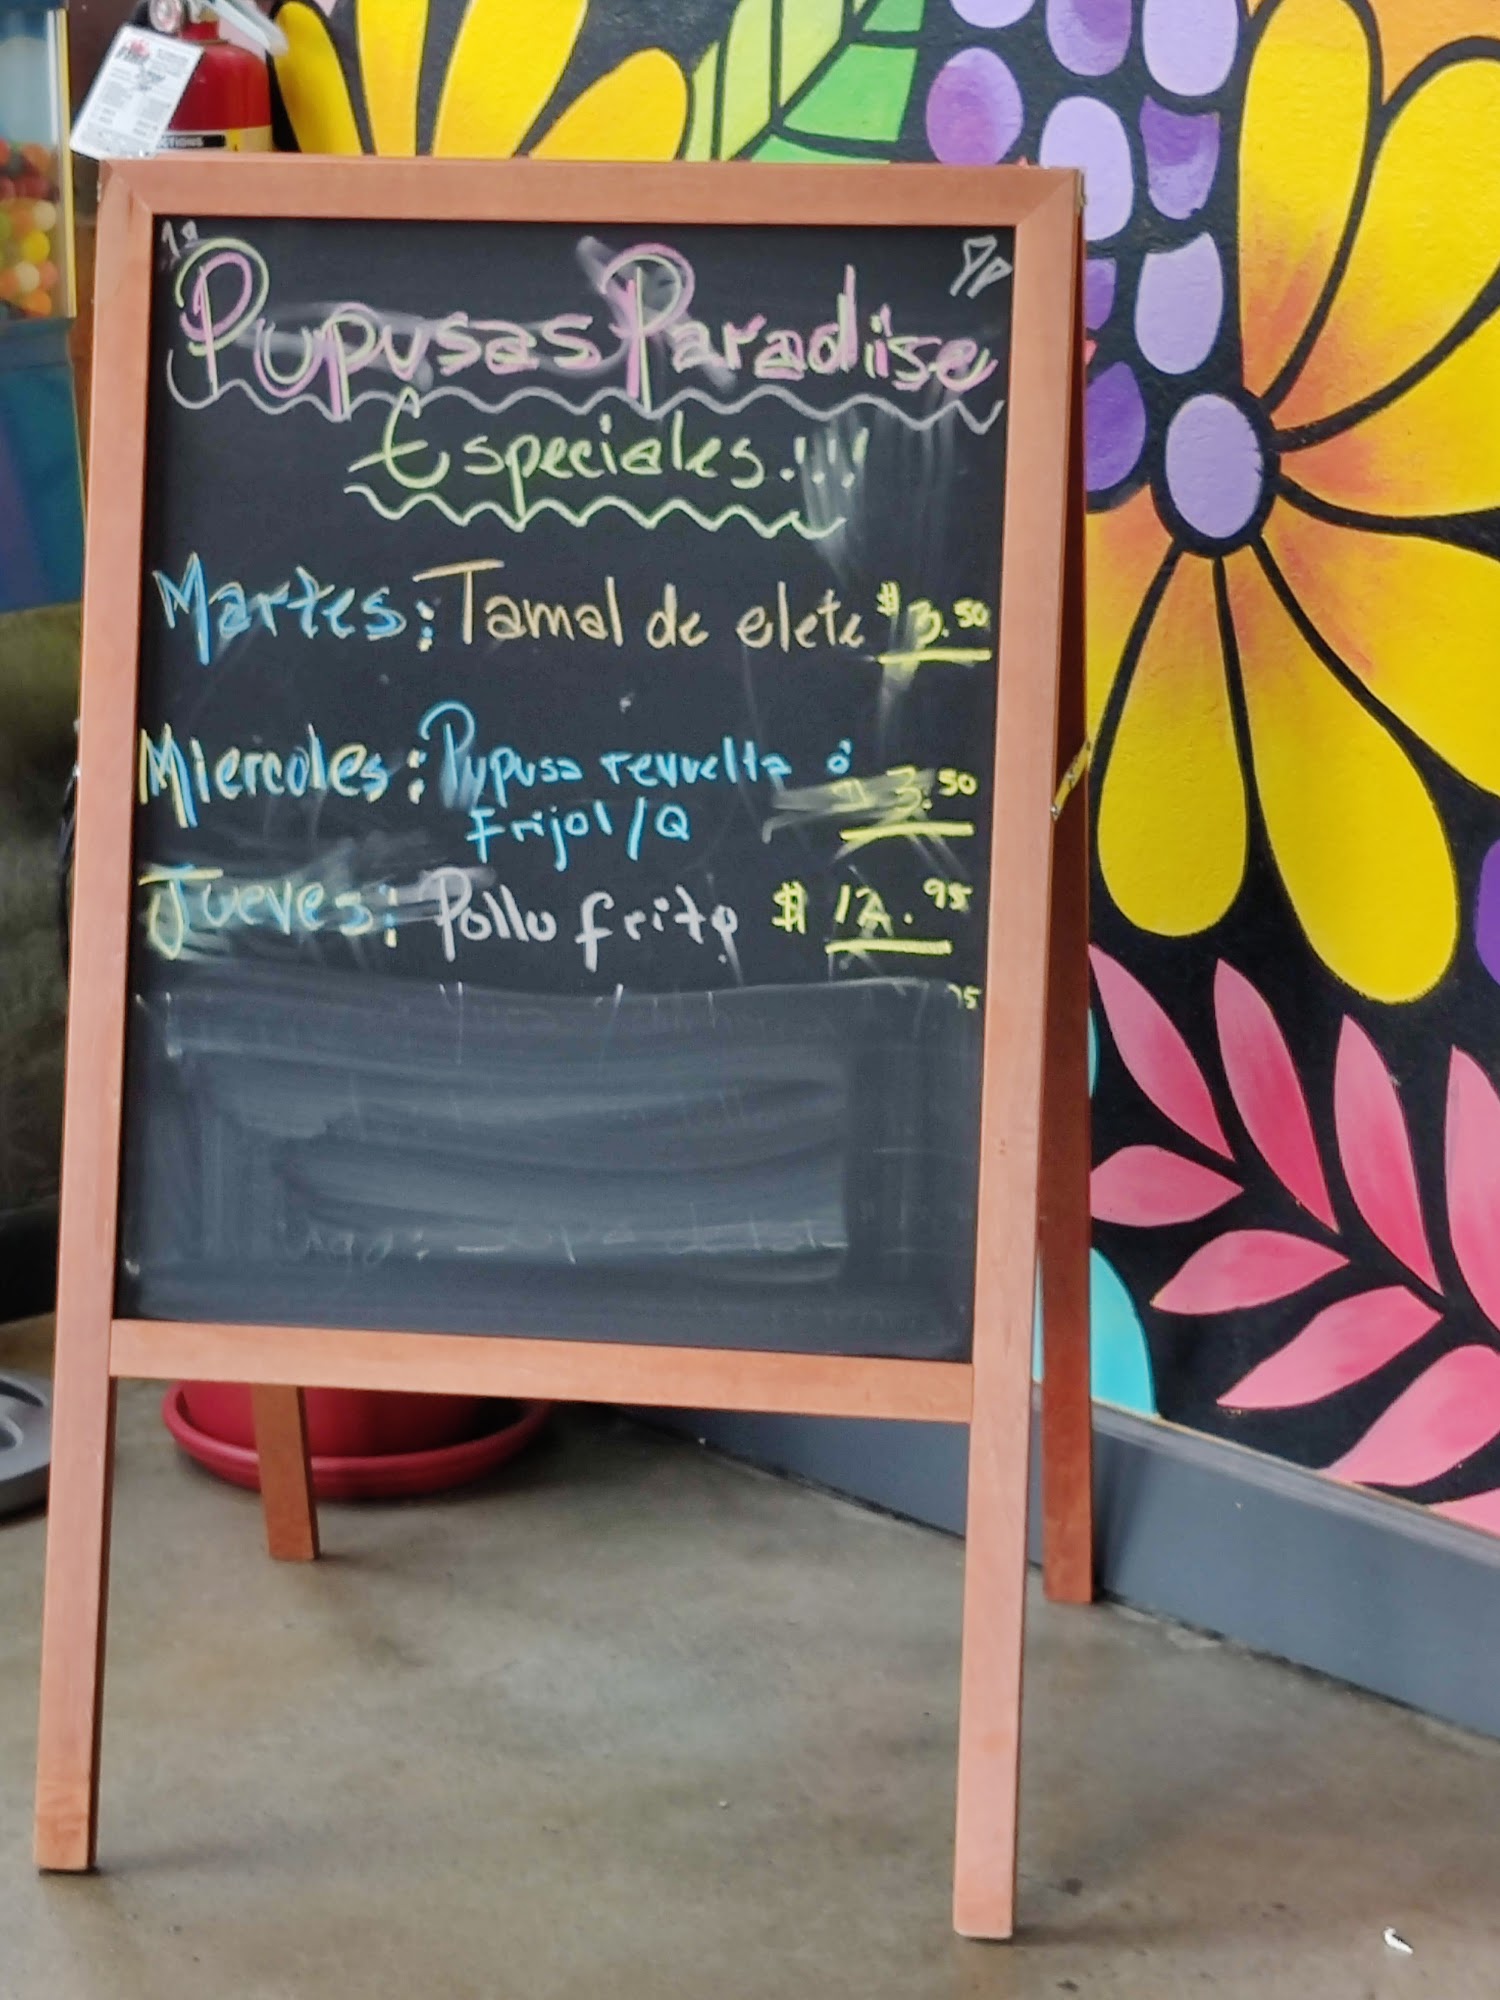 Pupusas Paradise
Especiales.!!!
Martes: Tamal de elote $3.50
Miercoles: Pupusa revuelta ó
Frijol/Q $3.50
Jueves: Pollo frito $12.95